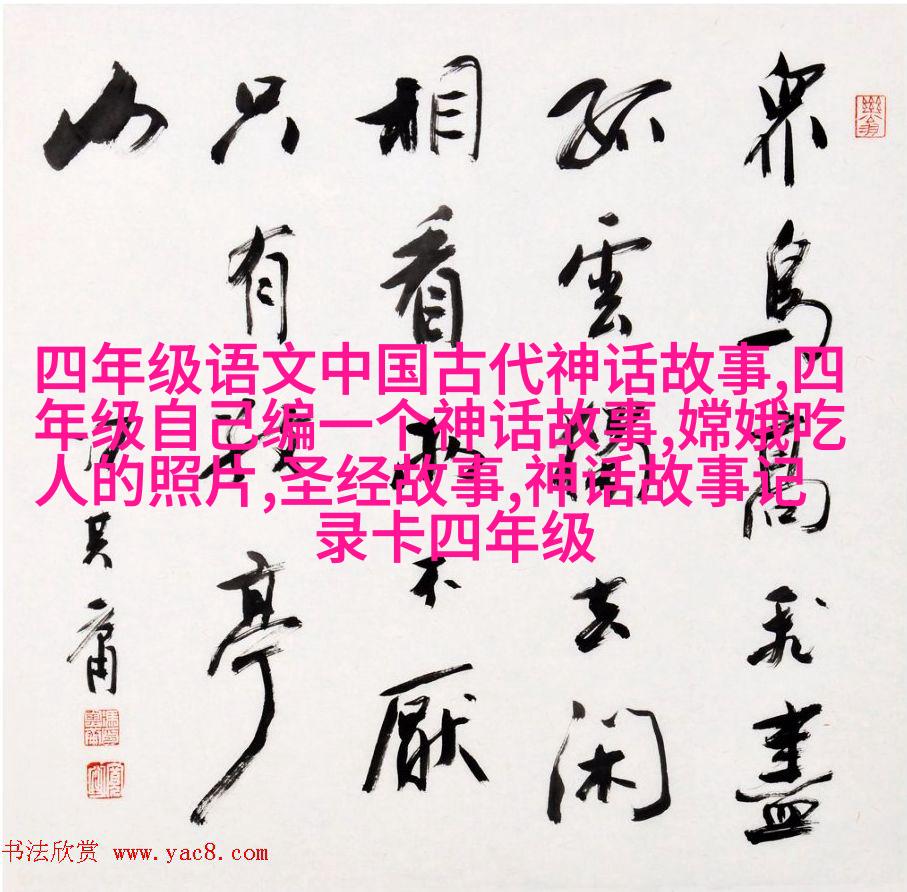 眾鳥高飛盡
孤雲獨去閑
相看兩不厭
只有敬亭
山
馮其庸
四年级语文中国古代神话故事,四
年级自己编一个神话故事,嫦娥吃
人的照片,圣经故事,神话故事记
录卡四年级
书法欣赏 www.yac8.com